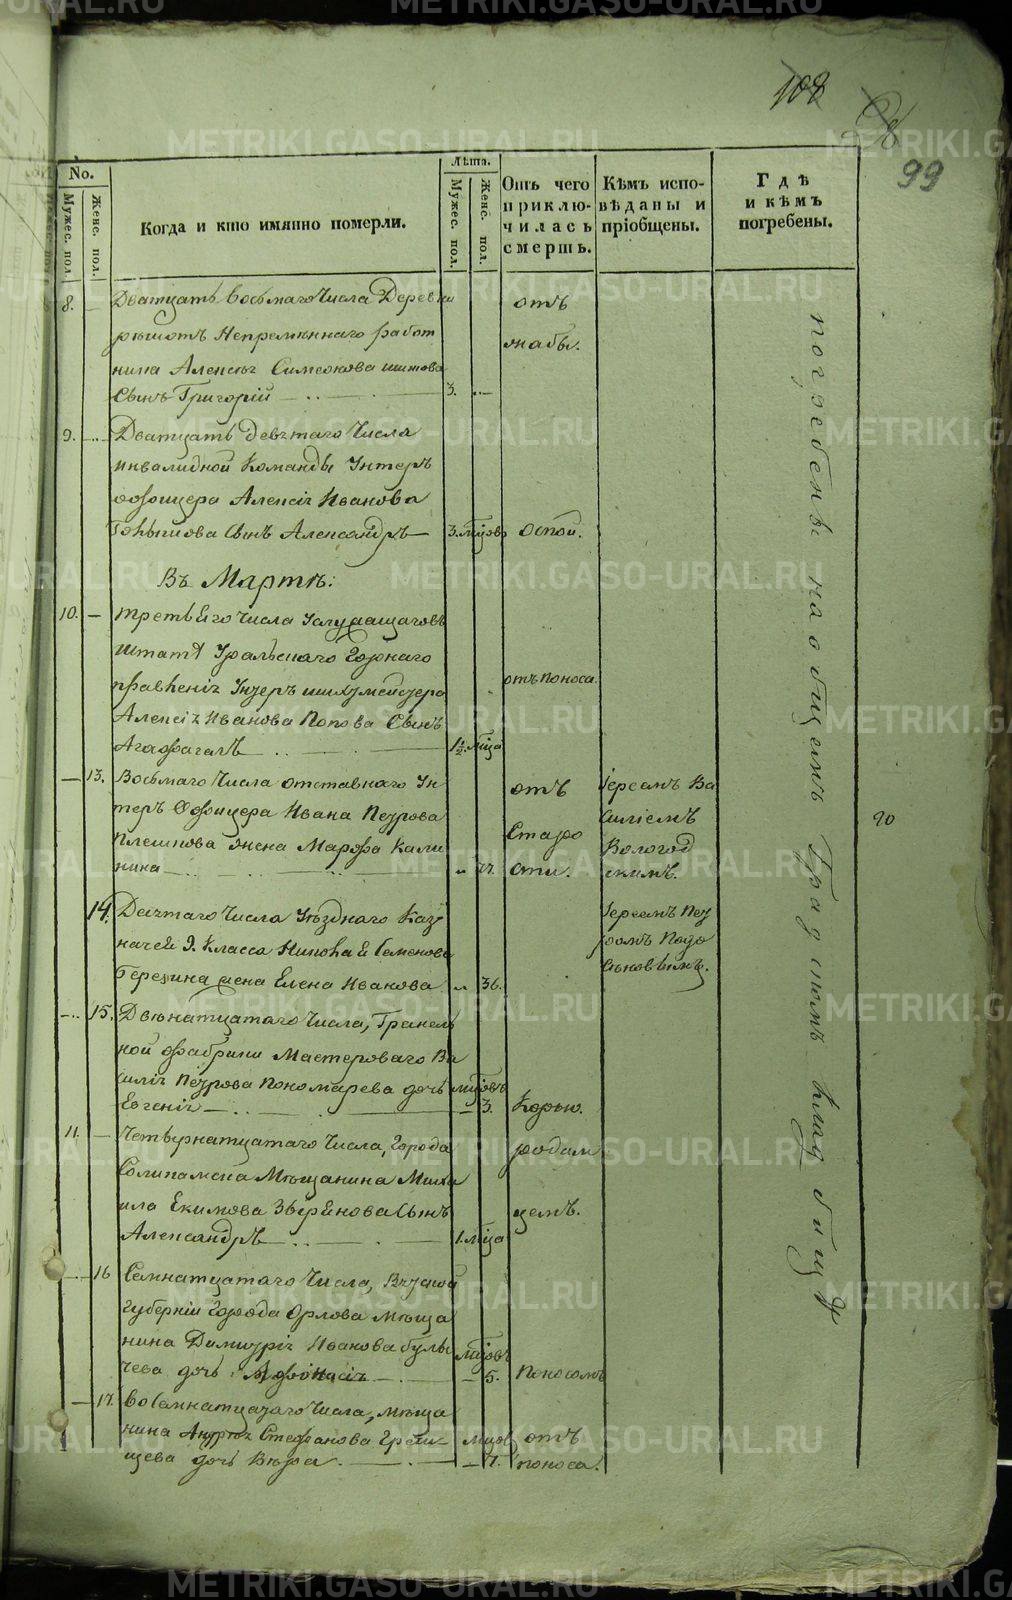 108
99
No.
Мужес. пол.
Женс. пол.
Когда и кто имянно померли.
Лѣта.
Мужес. пол.
Женс. пол.
Отъ чего приклю-
чилась смерть.
Кѣмъ испо-
вѣданы и
пріобщены.
Гдѣ
и кѣмъ
погребены.
8. Дватцать восьмаго числа Деревни
Непремѣннаго работ
ника Алексѣя Симеонова
Сынъ Григорій 3.
отъ
жабы.
9. Дватцать девятаго Числа
инвалидной Команды Унтеръ
офицера Алексія Иванова
Сынъ Александръ 3. мцовъ Оспой.
Въ Мартѣ:
10. третьяго числа
штата Уральскаго Горнаго
правленія Унтеръ шихтмейстера
Алексія Иванова Попова Сынъ
Агафагелъ 1½ мца
отъ поноса.
13. Восьмаго Числа отставнаго Ун
теръ Офицера Ивана Петрова
Плешкова жена Марфа Кали
нина 77.
отъ
Старо
сти.
Іереемъ Ва
силіемъ
Вологод
скимъ.
14. Десятаго Числа Уѣзднаго Каз
начея 9. Класса Семенова
жена Елена Иванова 36.
Іереемъ Пет
ромъ
15. Двенатцатаго Числа, Граниль
ной фабрики Мастероваго Ва
силія Петрова Пономарева дочь мцовъ
Евгенія 3. Корью.
11. Четырнатцатаго Числа, города
Соликамска Мѣщанина Миха
ила Екимова Сынъ
Александръ 1. мца
родим
цемъ.
16 Семнатцатаго Числа, Вятской
губерніи города Орлова мѣща
нина Димитрія Иванова Булы
чева дочь Афонасія мцовъ 5. Поносомъ
17. Восемнатцатаго Числа, мѣща
нина Стефанова
дочь Вѣра. мцов 7.
отъ
поноса.
погребены на общемъ Градскомъ кладбищѣ
20
METRIKI.GASO-URAL.RU